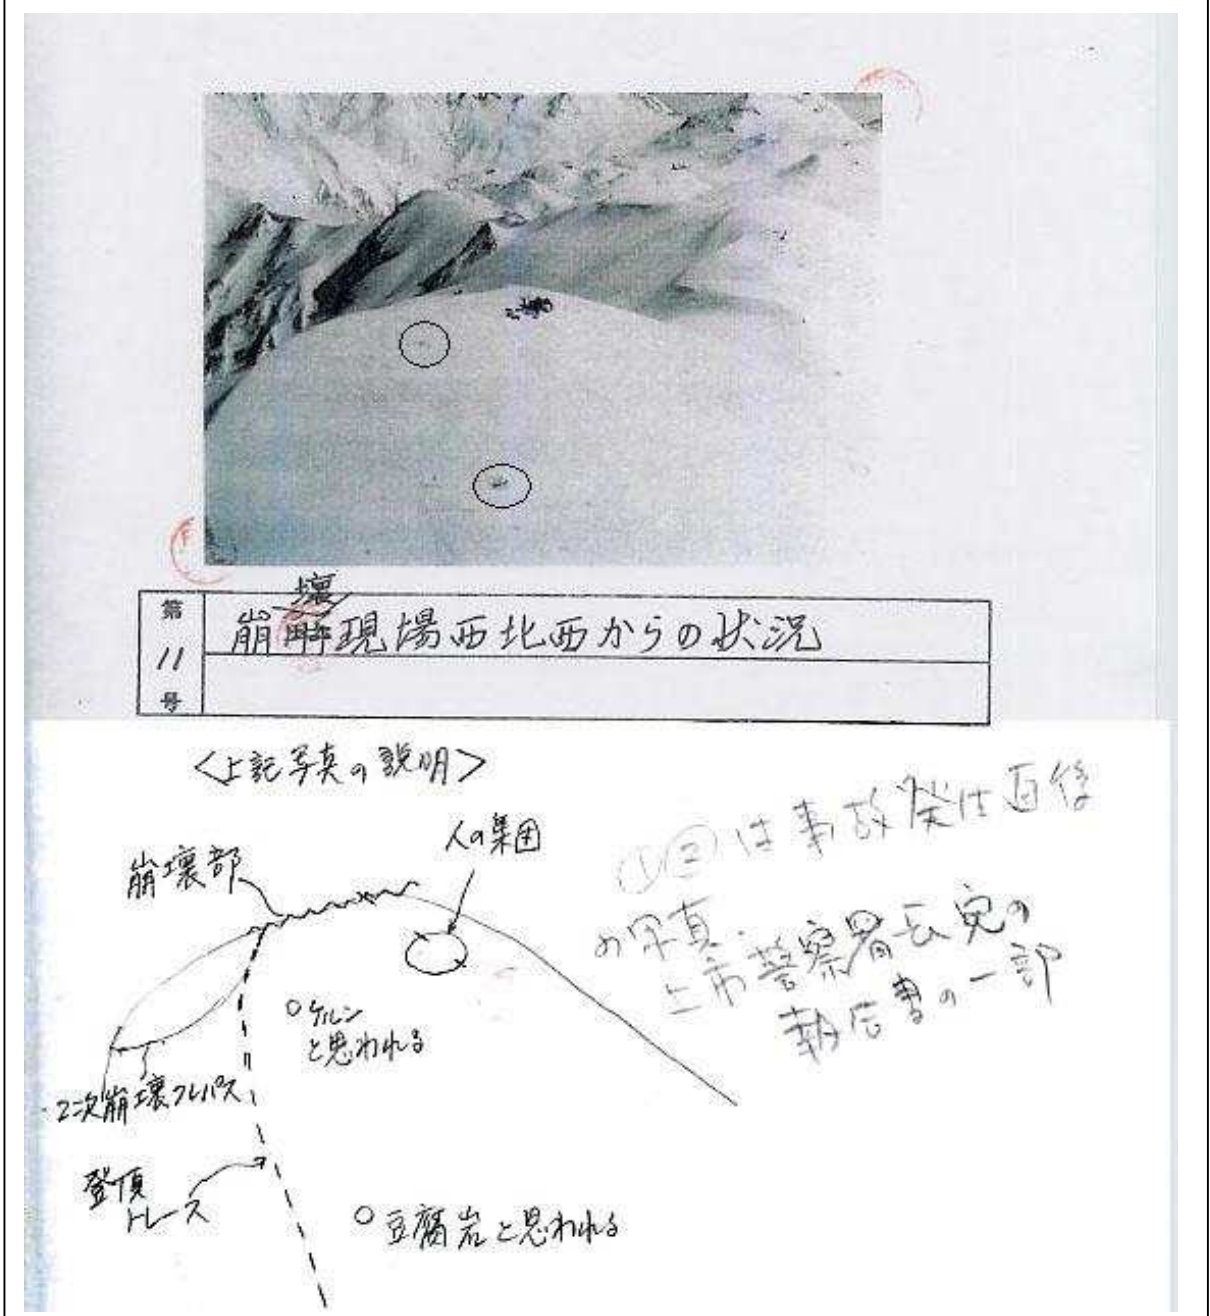 第
11
号
崩壊現場西北西からの状況
<上記写真の説明>
人の集団
崩壊部
①②は事故発生直後
の写真.
上市警察署長宛の
報告書の一部
○ケルン
と思われる
2次崩壊
登頂
トレース
○豆腐岩と思われる